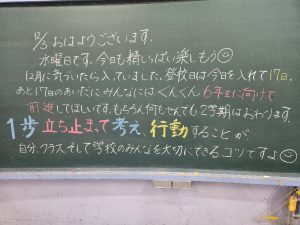 12/3 おはようございます。
水曜日です。今日も精いっぱい楽しもう☺
12月に気づいたら入っていました。登校日は今日を入れて17日。
あと17日のあいだにみんなにはぐんぐん6年生に向けて
前進してほしいです。もちろん何もせんでも2学期はおわります。
1歩 立ち止まって考え、行動することが
自分、クラス、そして学校のみんなを大切にできるコツですよ☺